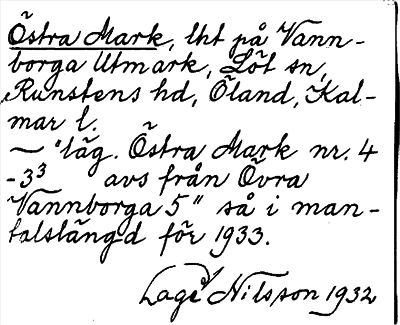 Östra Mark, lht på Vann-
borga Utmark, Löt sn,
Runstens hd, Öland, Kal-
mar l.
— "läg. Östra Mark nr. 4
-3³ avs från Övra
Vannborga 5" så i man-
talslängd för 1933.
Lage Nilsson 1932